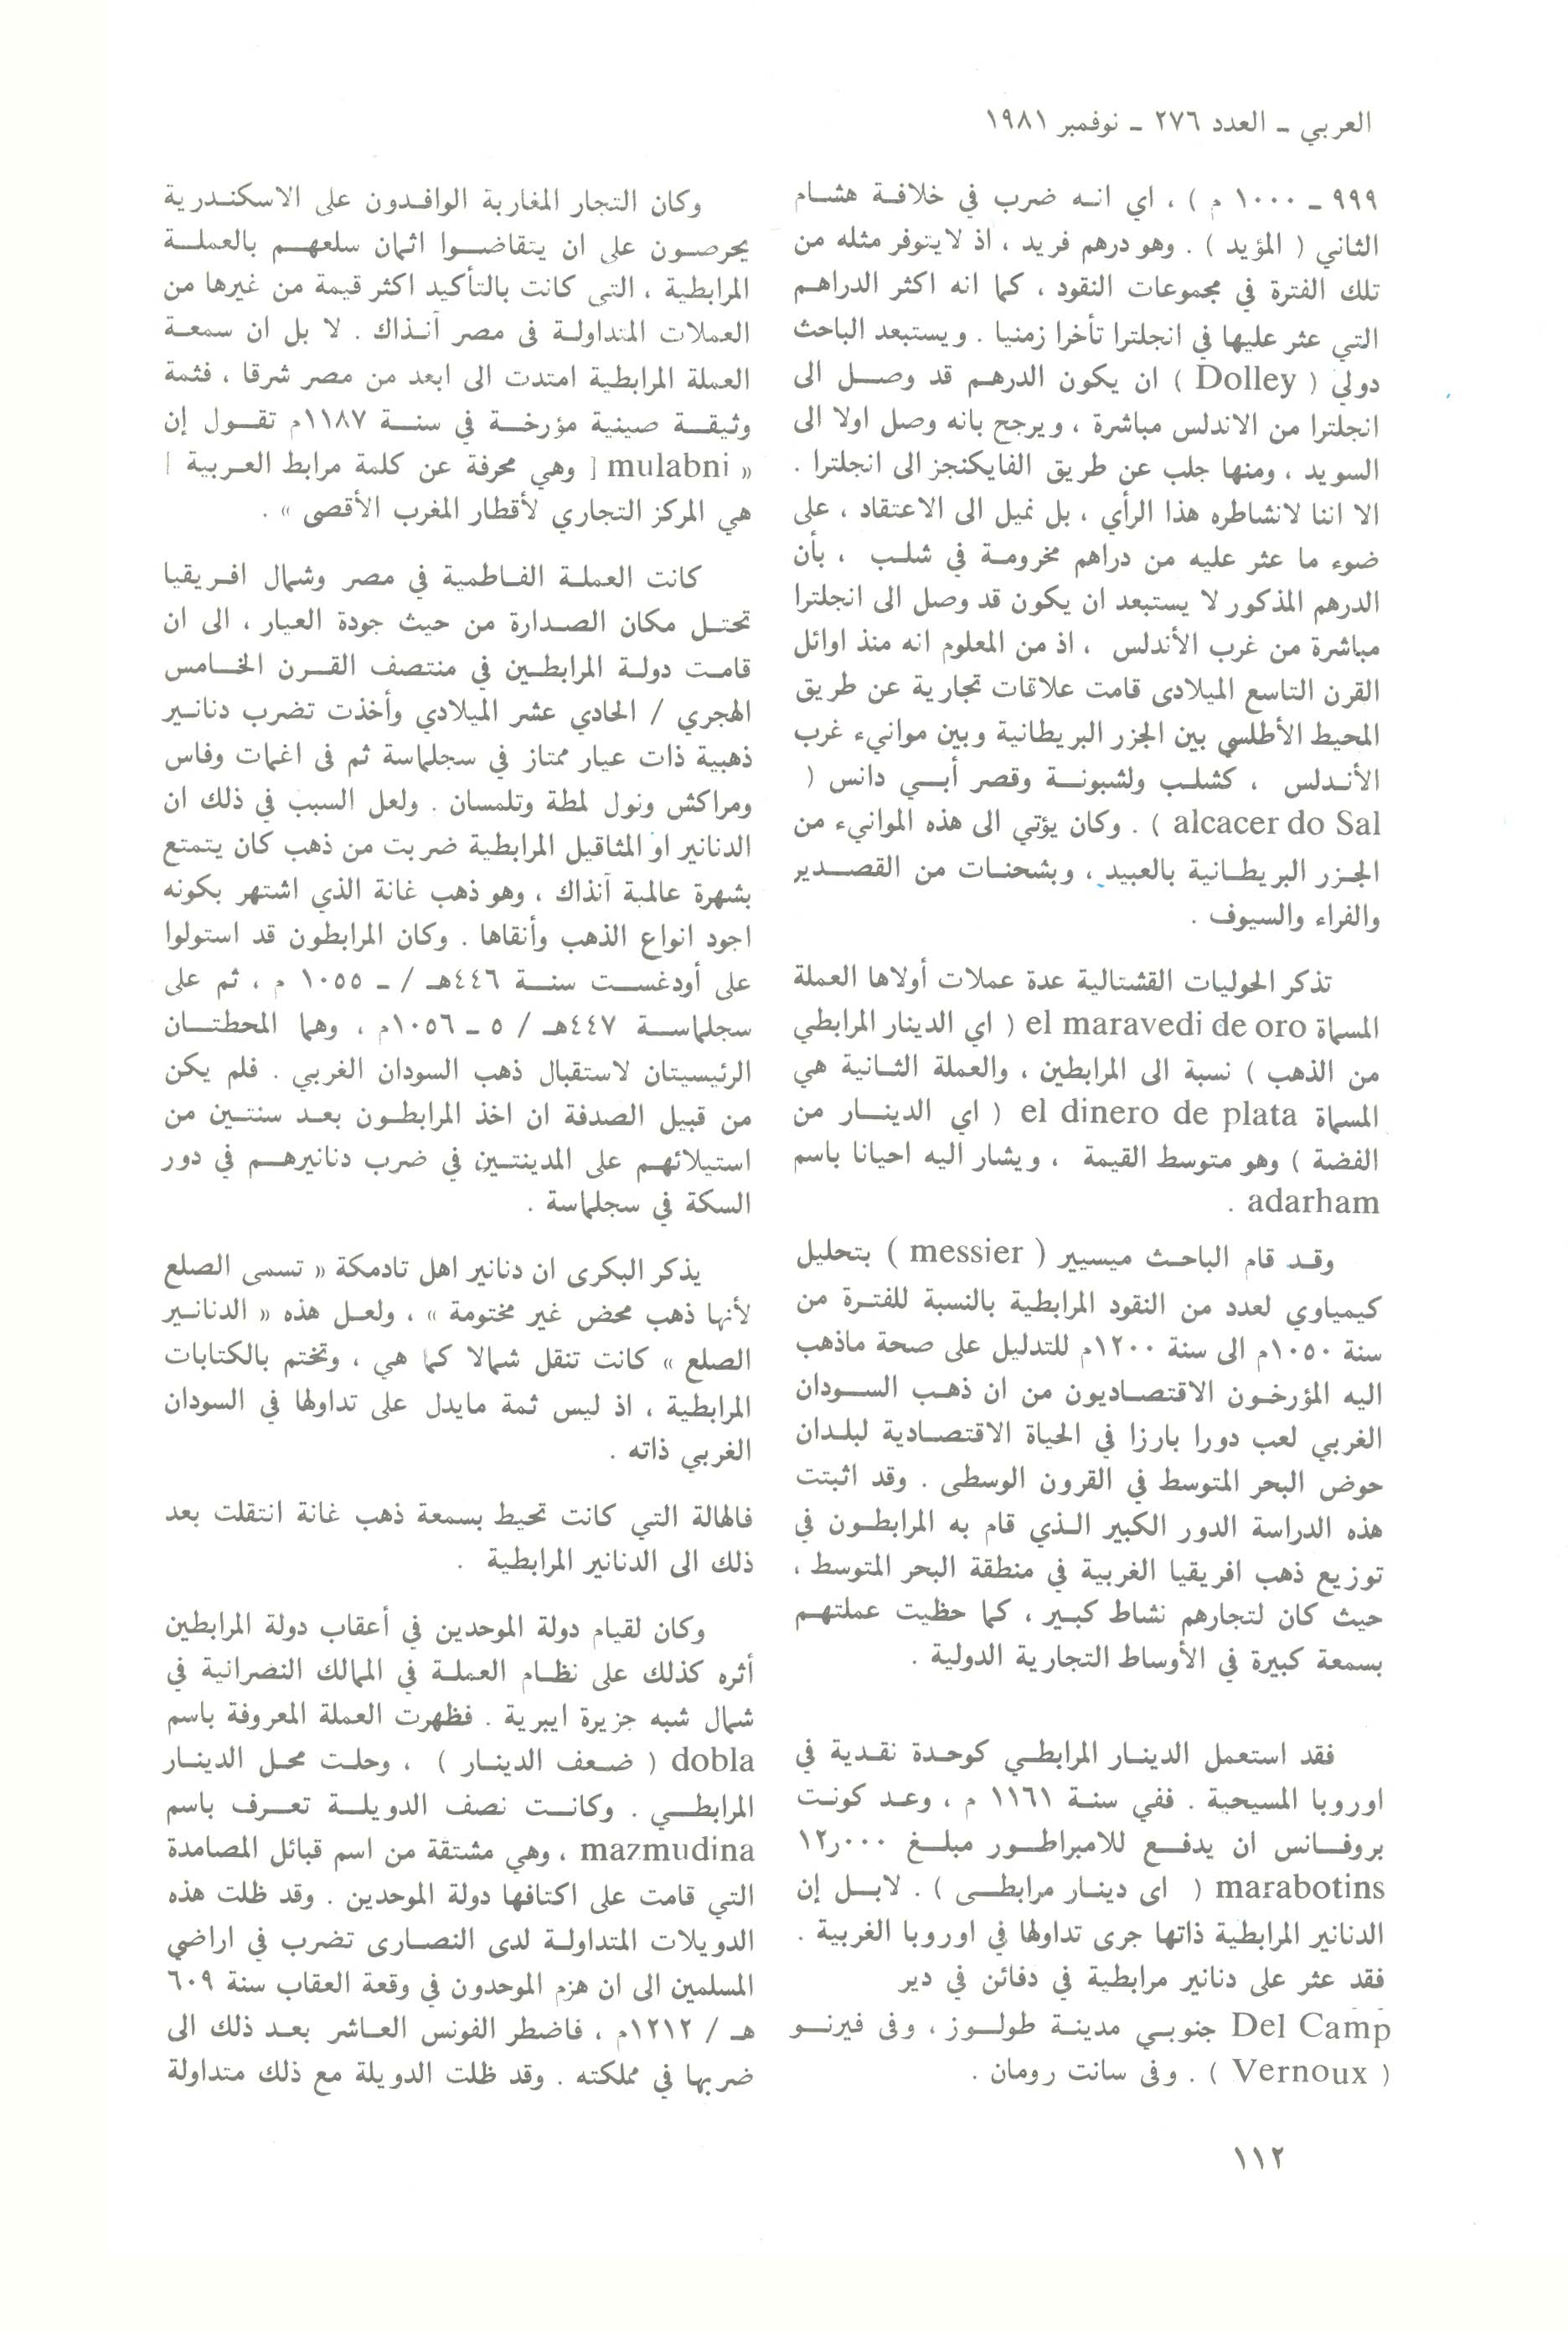 العربي ـ العدد ٢٧٦ ـ نوفمبر ١٩٨١
٩٩٩ ـ ١٠٠٠ م ) ، اي انه ضرب في خلافة هشام
الثاني ( المؤيد ) . وهو درهم فريد ، اذ لايتوفر مثله من
تلك الفترة في مجموعات النقود ، كما انه اكثر الدراهم
التي عثر عليها في انجلترا تأخرا زمنيا . ويستبعد الباحث
دولي ( Dolley ) ان يكون الدرهم قد وصل الى
انجلترا من الاندلس مباشرة ، ويرجح بانه وصل اولا الى
السويد ، ومنها جلب عن طريق الفايكنجز الى انجلترا .
الا اننا لانشاطره هذا الرأي ، بل نميل الى الاعتقاد ، على
ضوء ما عثر عليه من دراهم مخرومة في شلب ، بأن
الدرهم المذكور لا يستبعد ان يكون قد وصل الى انجلترا
مباشرة من غرب الأندلس ، اذ من المعلوم انه منذ اوائل
القرن التاسع الميلادى قامت علاقات تجارية عن طريق
المحيط الأطلسي بين الجزر البريطانية وبين موانيء غرب
الأندلس ، كشلب ولشبونة وقصر أبي دانس (
alcacer do Sal ) . وكان يؤتي الى هذه الموانيء من
الجزر البريطانية بالعبيد ، وبشحنات من القصدير
والفراء والسيوف .
تذكر الحوليات القشتالية عدة عملات أولاها العملة
المسماة el maravedi de oro ( اي الدينار المرابطي
من الذهب ) نسبة الى المرابطين ، والعملة الثانية هي
المسماة el dinero de plata ( اي الدينار من
الفضة ) وهو متوسط القيمة ، ويشار اليه احيانا باسم
adarham .
وقد قام الباحث ميسيير ( messier ) بتحليل
كيمياوي لعدد من النقود المرابطية بالنسبة للفترة من
سنة ١٠٥٠م الى سنة ١٢٠٠م للتدليل على صحة ماذهب
اليه المؤرخون الاقتصاديون من ان ذهب السودان
الغربي لعب دورا بارزا في الحياة الاقتصادية لبلدان
حوض البحر المتوسط في القرون الوسطى . وقد اثبتت
هذه الدراسة الدور الكبير الذي قام به المرابطون في
توزيع ذهب افريقيا الغربية في منطقة البحر المتوسط ،
حيث كان لتجارهم نشاط كبير ، كما حظيت عملتهم
بسمعة كبيرة في الأوساط التجارية الدولية .
فقد استعمل الدينار المرابطي كوحدة نقدية في
اوروبا المسيحية . ففي سنة ١١٦١ م ، وعد كونت
بروفانس ان يدفع للامبراطور مبلغ ١٢ر٠٠٠
marabotins ( اى دينار مرابطى ) . لابل إن
الدنانير المرابطية ذاتها جرى تداولها في اوروبا الغربية .
فقد عثر على دنانير مرابطية في دفائن في دير
Del Camp جنوبي مدينة طولوز ، وفى فيرنو
( Vernoux ) . وفى سانت رومان .
وكان التجار المغاربة الوافدون على الاسكندرية
يحرصون على ان يتقاضوا اثمان سلعهم بالعملة
المرابطية ، التى كانت بالتأكيد اكثر قيمة من غيرها من
العملات المتداولة فى مصر آنذاك . لا بل ان سمعة
العملة المرابطية امتدت الى ابعد من مصر شرقا ، فثمة
وثيقة صينية مؤرخة في سنة ١١٨٧م تقول إن
« mulabni [ وهي محرفة عن كلمة مرابط العربية ]
هي المركز التجاري لأقطار المغرب الأقصى » .
كانت العملة الفاطمية في مصر وشمال افريقيا
تحتل مكان الصدارة من حيث جودة العيار ، الى ان
قامت دولة المرابطين في منتصف القرن الخامس
الهجري / الحادي عشر الميلادي وأخذت تضرب دنانير
ذهبية ذات عيار ممتاز في سجلماسة ثم فى اغمات وفاس
ومراكش ونول لمطة وتلمسان . ولعل السبب في ذلك ان
الدنانير او المثاقيل المرابطية ضربت من ذهب كان يتمتع
بشهرة عالمية آنذاك ، وهو ذهب غانة الذي اشتهر بكونه
اجود انواع الذهب وأنقاها . وكان المرابطون قد استولوا
على أودغست سنة ٤٤٦هـ / ـ ١٠٥٥ م ، ثم على
سجلماسة ٤٤٧هـ / ٥ ـ ١٠٥٦م ، وهما المحطتان
الرئيسيتان لاستقبال ذهب السودان الغربي . فلم يكن
من قبيل الصدفة ان اخذ المرابطون بعد سنتين من
استيلائهم على المدينتين في ضرب دنانيرهم في دور
السكة في سجلماسة .
يذكر البكرى ان دنانير اهل تادمكة « تسمى الصلع
لأنها ذهب محض غير مختومة » ، ولعل هذه « الدنانير
الصلع » كانت تنقل شمالا كما هي ، وتختم بالكتابات
المرابطية ، اذ ليس ثمة مايدل على تداولها في السودان
الغربي ذاته .
فالهالة التي كانت تحيط بسمعة ذهب غانة انتقلت بعد
ذلك الى الدنانير المرابطية .
وكان لقيام دولة الموحدين في أعقاب دولة المرابطين
أثره كذلك على نظام العملة في الممالك النصرانية في
شمال شبه جزيرة ايبرية . فظهرت العملة المعروفة باسم
dobla ( ضعف الدينار ) ، وحلت محل الدينار
المرابطي . وكانت نصف الدويلة تعرف باسم
mazmudina ، وهي مشتقة من اسم قبائل المصامدة
التي قامت على اكتافها دولة الموحدين . وقد ظلت هذه
الدويلات المتداولة لدى النصارى تضرب في اراضي
المسلمين الى ان هزم الموحدون في وقعة العقاب سنة ٦٠٩
هـ / ١٢١٢م ، فاضطر الفونس العاشر بعد ذلك الى
ضربها في مملكته . وقد ظلت الدويلة مع ذلك متداولة
١١٢